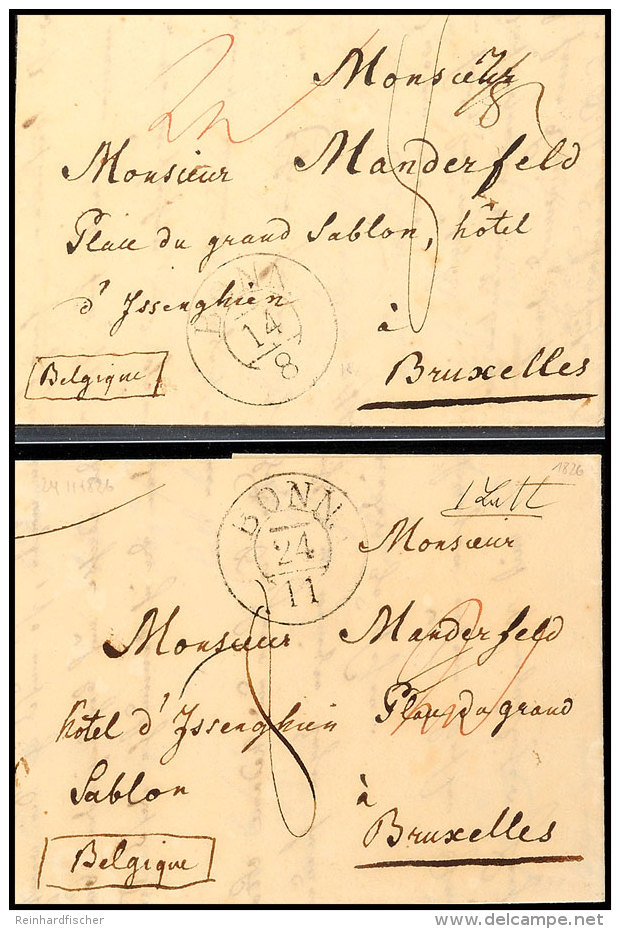 Monsieur
Monsieur Manderfeld
Place du grand Sablon, hôtel
d'Issenghien
à
Bruxelles
Belgique
BONN
14
8
24 11 1826
1826
BONN
24
11
1 Lott
Monsieur
Monsieur Manderfeld
hôtel d'Issenghien Place du grand
Sablon
à
Bruxelles
Belgique
Reinhardfischer
delcampe.net